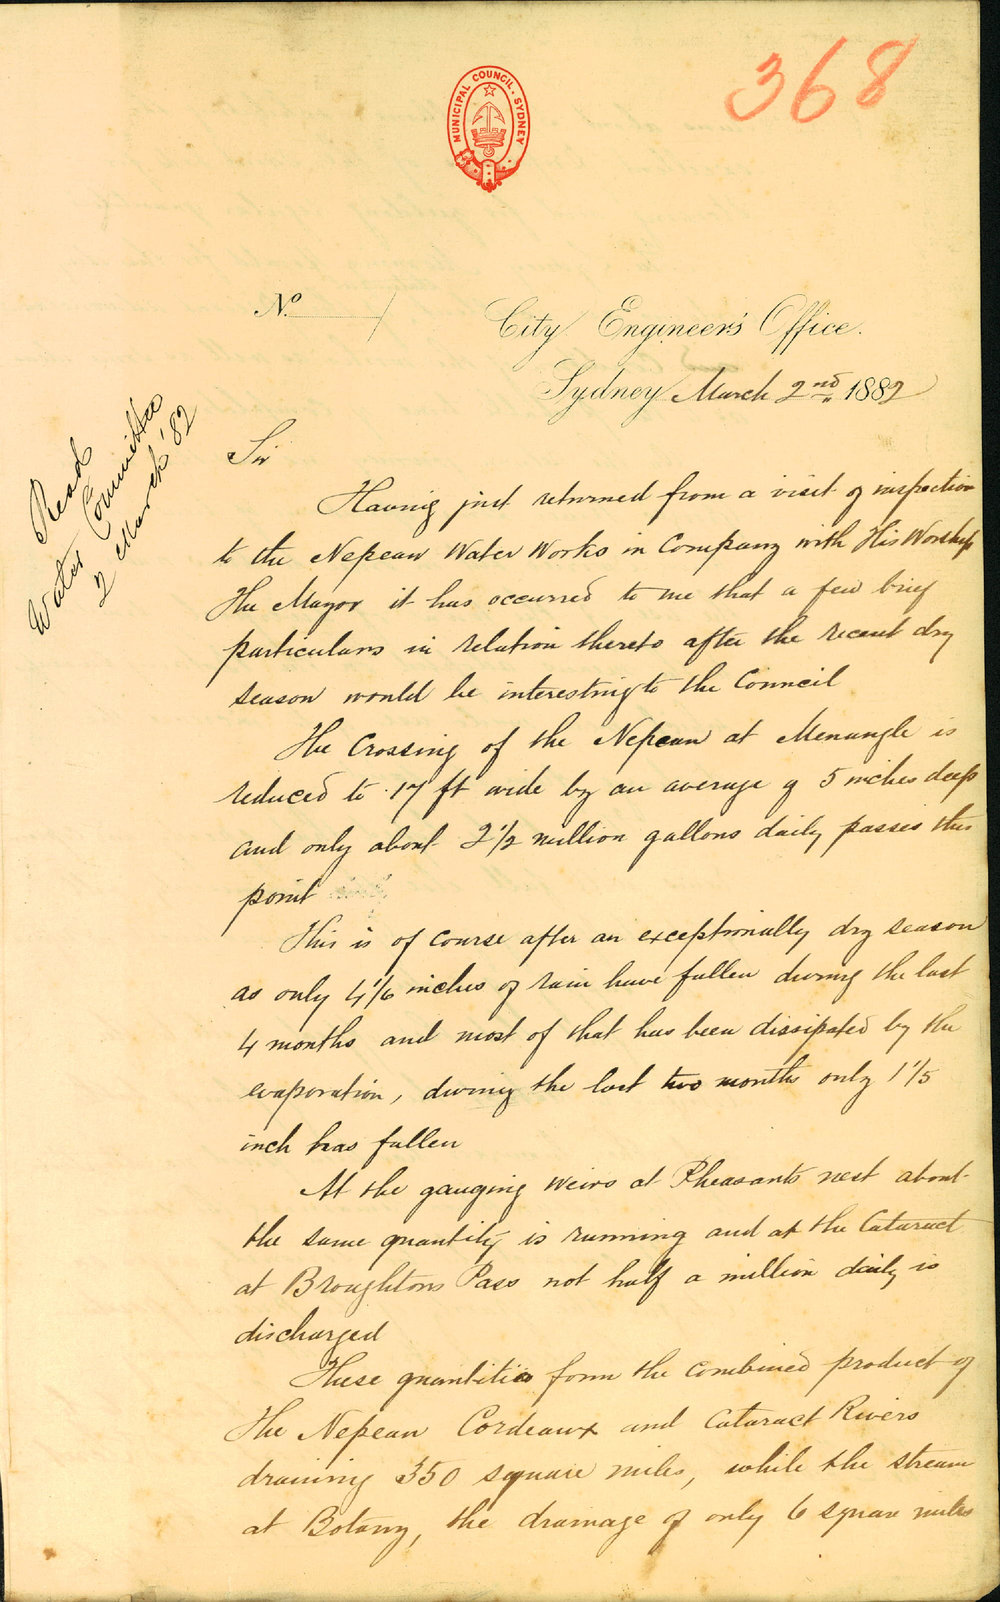 368
MUNICIPAL COUNCIL. SYDNEY
No.
City Engineer's Office.
Sydney March 2nd 1882
Read
Water Committee
2 March '82
Sir
Having just returned from a visit of inspection
to the Nepean Water Works in Company with His Worship
The Mayor it has occurred to me that a few brief
particulars in relation thereto after the recent dry
season would be interesting to the Council
The Crossing of the Nepean at Menangle is
reduced to 17 ft wide by an average of 5 inches deep
and only about 2 1/2 million gallons daily passes this
point
This is of course after an exceptionally dry season
as only 4 1/6 inches of rain have fallen during the last
4 months and most of that has been dissipated by the
evaporation, during the last two months only 1 1/5
inch has fallen
At the gauging weirs at Pheasants nest about
the same quantity is running and at the Cataract
at Broughtons Pass not half a million daily is
discharged
These quantities form the combined product of
The Nepean Cordeaux and Cataract Rivers
draining 350 square miles, while the stream
at Botany, the drainage of only 6 square miles